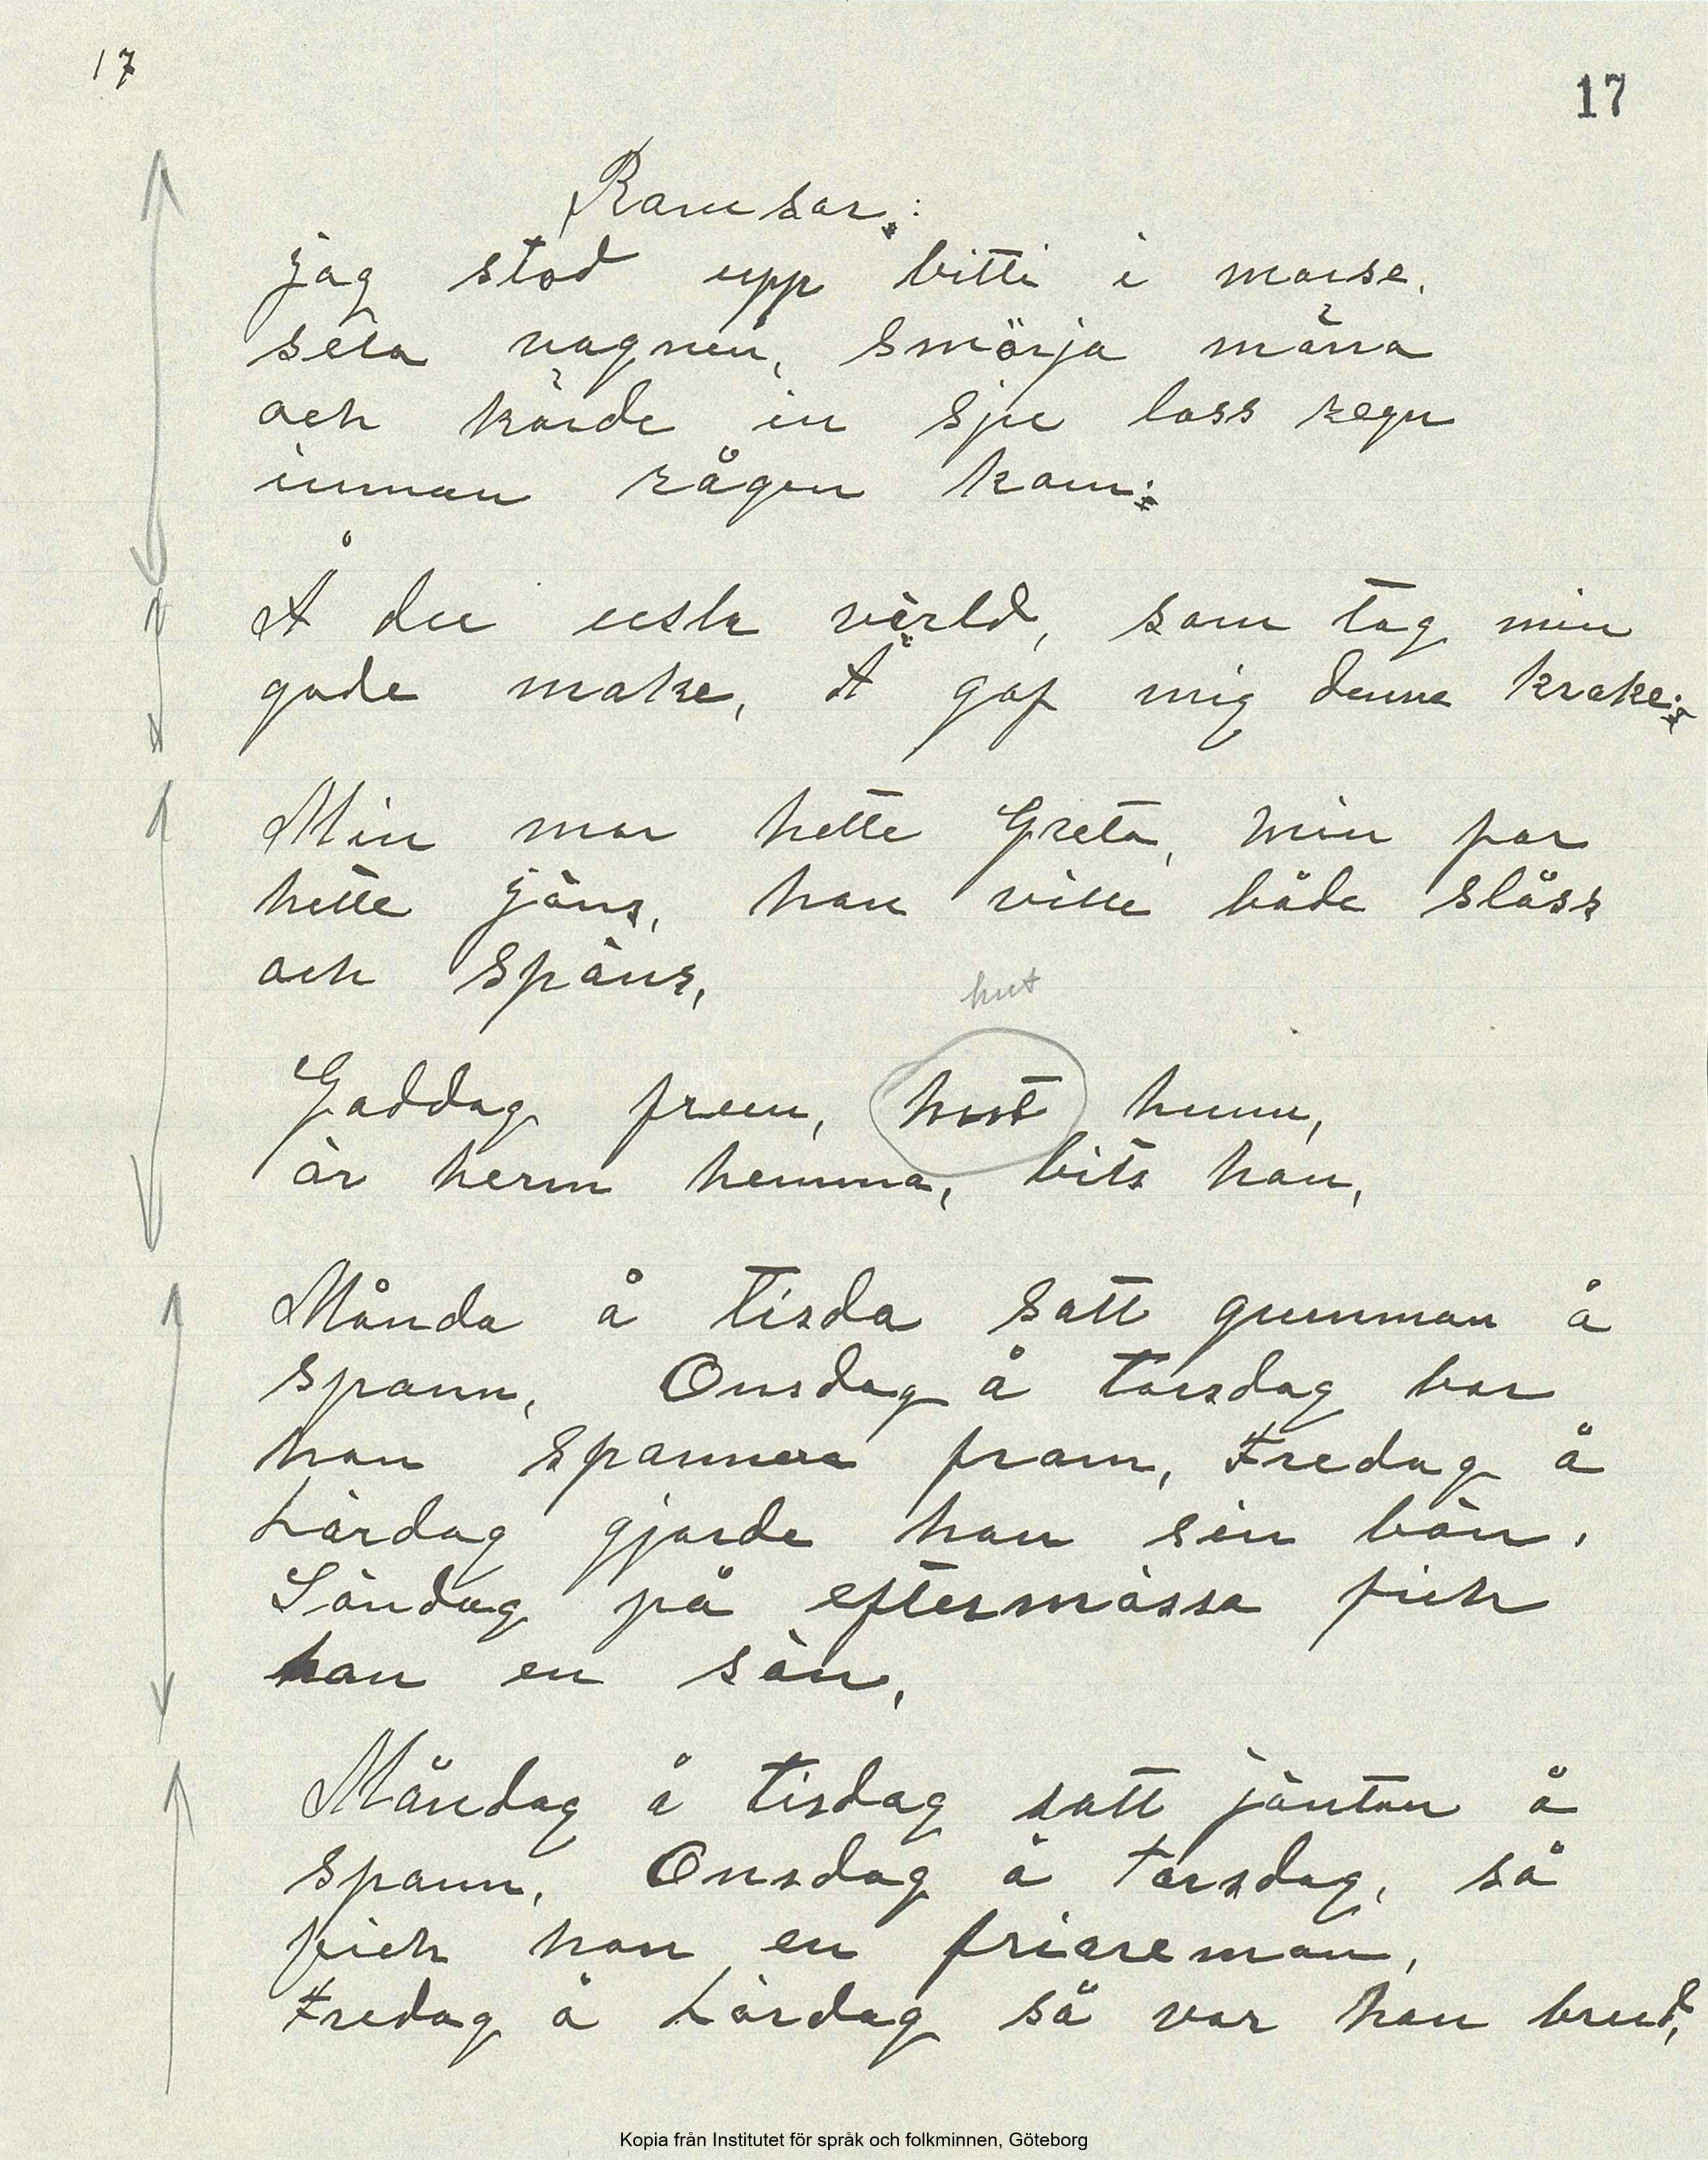 17
17
Ramsor.:
jag stod upp bitti i morse,
sela vagnen, smörja märra
och körde in sju lass regn
innan rågen kom:
Å du usla värld, som tog min
gode make, Å gaf mig denna krake:
Min mor hette Greta, min far
hette jöns, han ville både slåss
och späns,
hut
Goddag fruen, hut hunn,
är herrn hemma, bits han,
Månda å tisda satt gumman å
spann, Onsdag å torsdag bar
hon spannena fram, Fredag å
Lördag gjorde hon sin bön,
Söndag på eftermässa fick
hon en sön,
Måndag å tisdag satt jäntan å
spann, Onsdag å torsdag, så
fick hon en friareman,
Fredag å Lördag så var hon brud,
Kopia från Institutet för språk och folkminnen, Göteborg